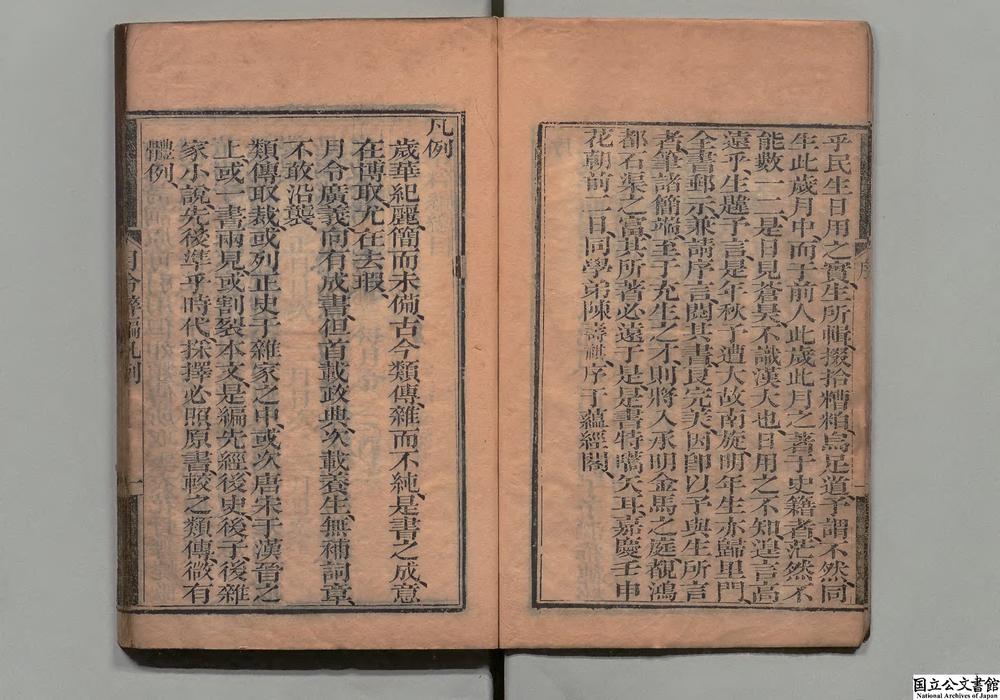 乎民生日用之實生所輯掇拾糟粕烏足道予謂不然同
生此歲月中而予前人此歲此月之著于史籍者茫然不
能數一二是日見蒼昊不識漢大也日用之不知遑言高
遠乎生韙予言是年秋予遭大故南旋明年生亦歸里門
全書郵示兼請序言閱其書良完美因卽以予與生所言
者筆諸簡端至于充生之才則將入承明金馬之庭覩鴻
都石渠之富其所著必遠于是是書特嚆矢耳嘉慶壬申
花朝前一日同學弟陳壽祺序于蘊經閣
序
凡例
歲華紀麗簡而未備古今類傳雜而不純是書之成意
在博取尤在去瑕
月令廣義向有成書但首載政典次載養生無補詞章
不敢沿襲
類傳取裁或列正史于雜家之中或次唐宋于漢晉之
上或一書兩見或割裂本文是編先經後史後子後雜
家小說先後準乎時代採擇必照原書較之類傳微有
體例
月令粹編凡例
一
国立公文書館
National Archives of Japan